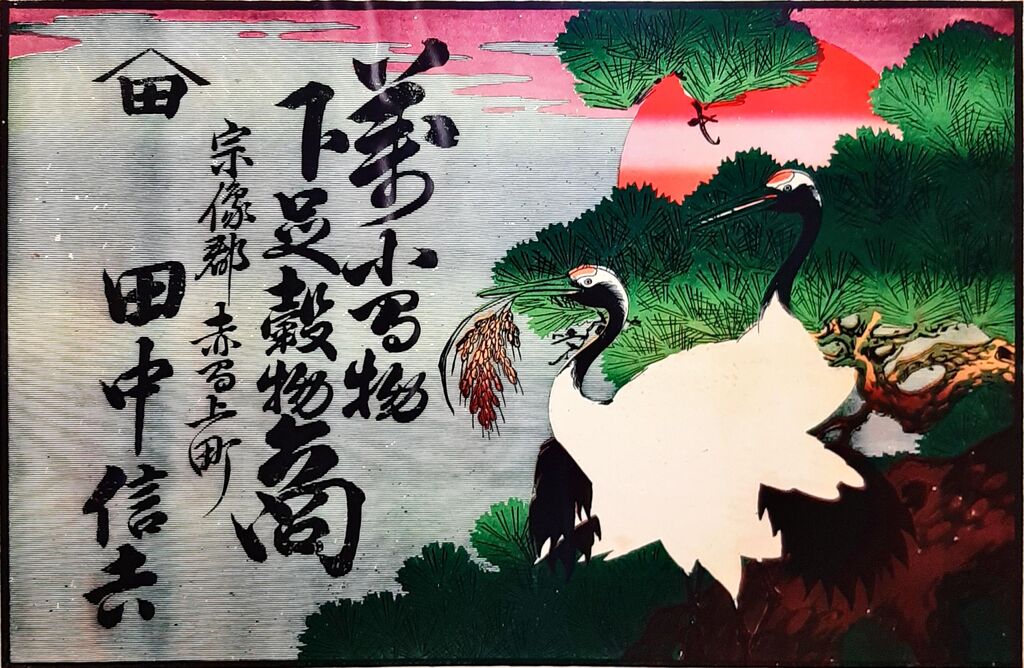 萬小間物
下足穀物商
宗像郡赤間上町
田
田中信吉